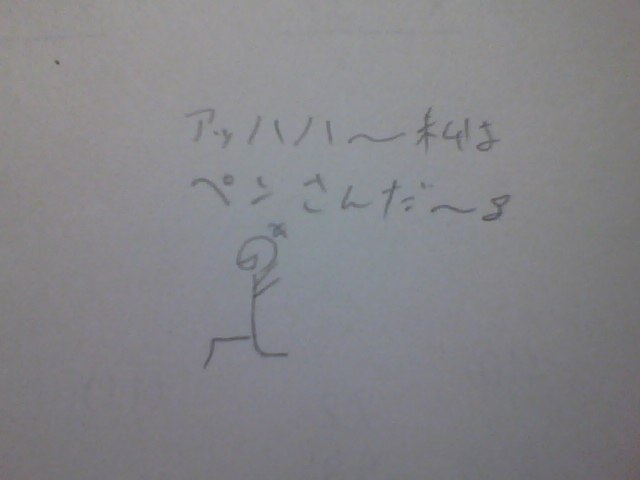 アッハハ～私は
ペンさんだ～8